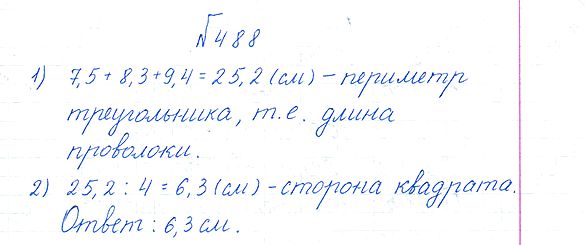 №488
1) 7,5 + 8,3 + 9,4 = 25,2 (см) – периметр
треугольника, т.е. длина
проволоки.
2) 25,2 : 4 = 6,3 (см) – сторона квадрата.
Ответ: 6,3 см.